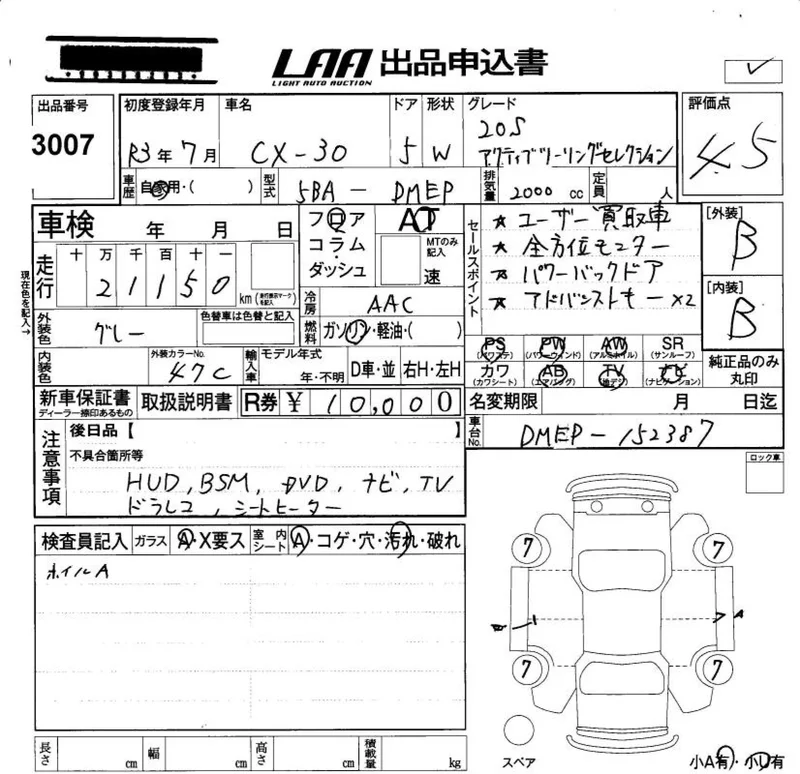 LAA 出品申込書
LIGHT AUTO AUCTION
出品番号 初度登録年月 車名 ドア 形状 グレード 評価点
3007 R3年7月 CX-30 5 W 20S 4.5
アクティブツーリングセレクション
車歴 自家用・( ) 型式 5BA-DMEP 排気量 2000cc 定員 人
車検 年 月 日 フロア AT セールスポイント ★ ユーザー買取車 [外装]
コラム・ MTのみ記入 ★ 全方位モニター B
走行 十 万 千 百 十 一 ダッシュ 速 ★ パワーバックドア
21150 km (走行表示マークを記入) ★ アドバンストキー×2 [内装]
現在色を記入→ 冷房 AAC B
外装色 グレー 色替車は色替と記入 燃料 ガソリン・軽油・( )
PS (パワステ) PW (パワーウィンド) AW (アルミホイル) SR (サンルーフ)
内装色 外装カラーNo. 47C 輸入車 モデル年式 年・不明 D車・並 右H・左H
カワ (カワシート) AB (エアバッグ) TV (地デジ) ナビ (ナビゲーション) 純正品のみ丸印
新車保証書 取扱説明書 R券 ¥ 10,000 名変期限 月 日迄
ディーラー捺印あるもの
注意事項 後日品【 】 車台No. DMEP-152387
不具合箇所等 ロック車
HUD, BSM, DVD, ナビ, TV
ドラレコ, シートヒーター
検査員記入 ガラス A・X要ス 室内シート A・コゲ・穴・汚れ・破れ
ホイルA
7 7
A
7 7
スペア
長さ cm 幅 cm 高さ cm 積載量 kg 小A有・小U有